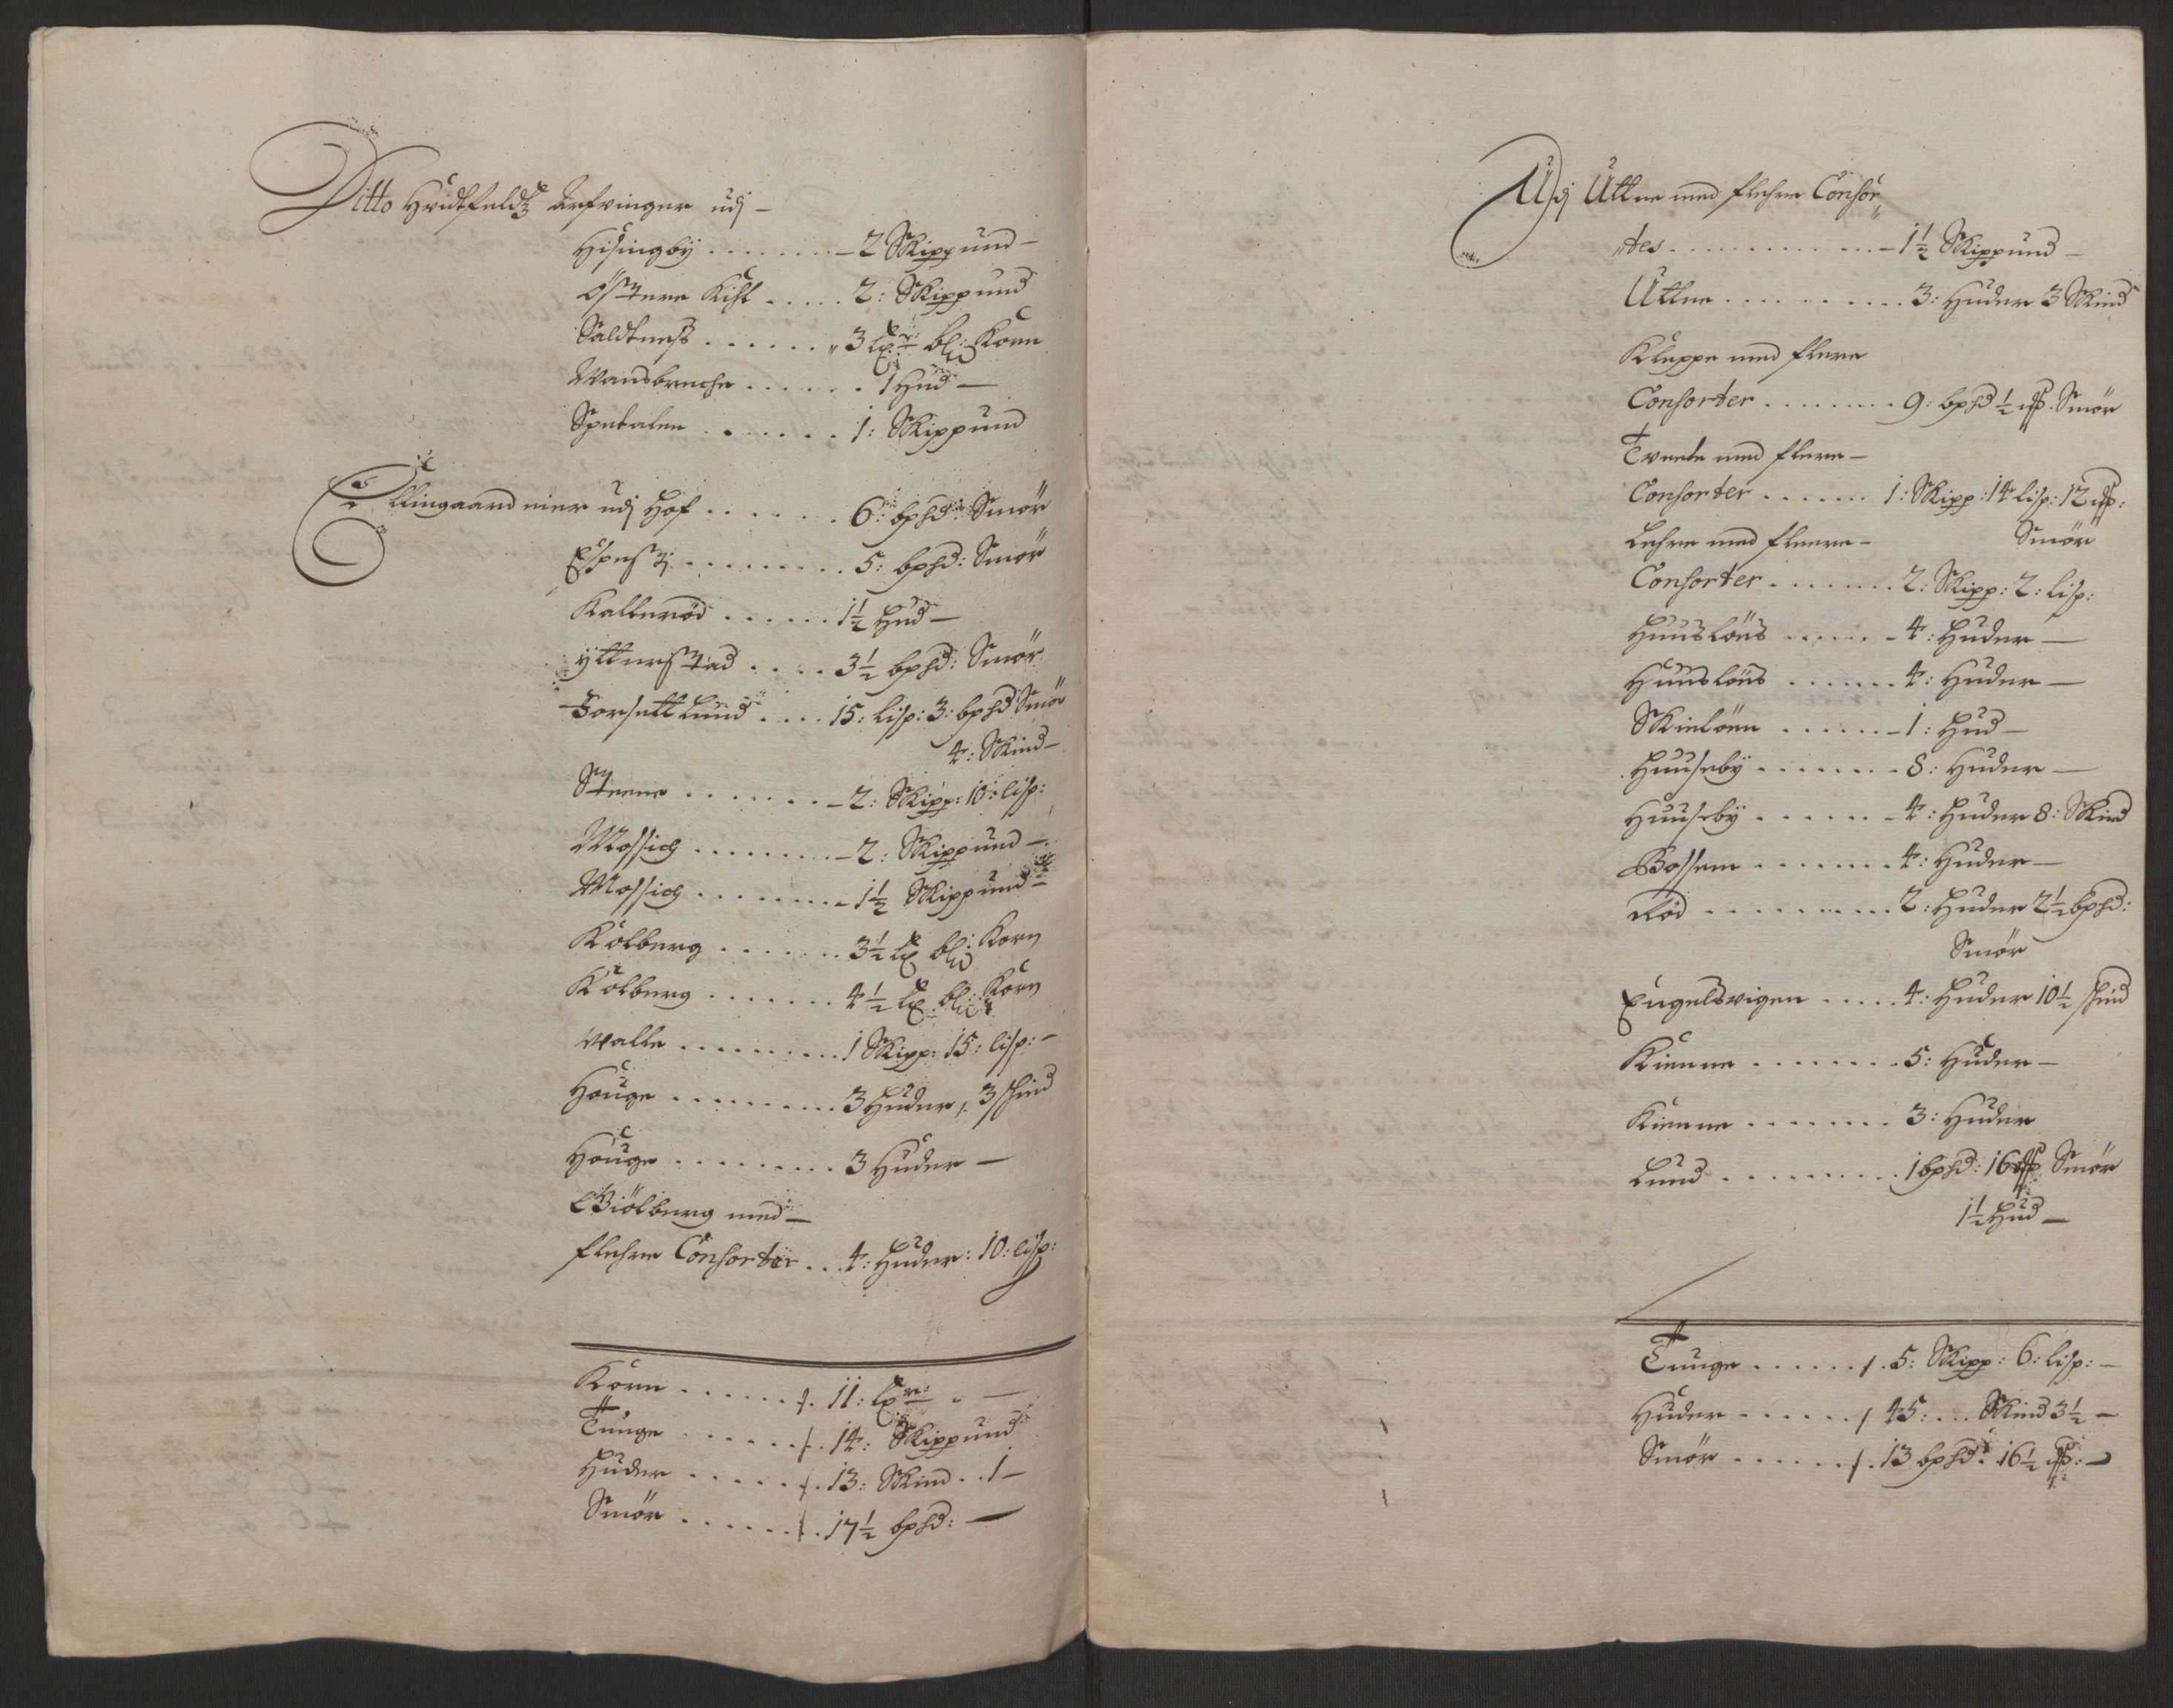 Ditto Hvidtfeldtz Arfvinger udj —
Hisingby . . . . . . . — 2 Skippund —
Østere Kihl . . . . . 2: Skippund
Saldtness . . . . . . 3 bl: Korn
Wansbreche . . . . . . 1 Hud —
Spetalen . . . . . . . 1: Skippund
Ellingaard eier udj Hof . . . . . . 6: bpsd: Smør
Espestj . . . . . . . . . 5: bpsd: Smør
Kallerød . . . . . . 1½ Hud —
Ytterstad . . . . 3½ bpsd: Smør
Torsett Lund . . . . 15: lisp: 3: bpsd Smør
4: Skind —
Steene . . . . . . . — 2: Skipp: 10: lisp:
Mossich . . . . . . . . — 2: Skippund —
Mossich . . . . . . . . — 1½ Skippund —
Kolberg . . . . . . . 3½ bl: Korn
Kolberg . . . . . . . 4½ bl: Korn
Walle . . . . . . . . . 1 Skipp: 15: lisp: —
Houge . . . . . . . . . 3 Huder, 3 skind
Houge . . . . . . . . . 3 Huder —
Giølberg med —
flehre Consorter . . . 4: Huder: 10: lisp:
Korn . . . . . . . 11: —
Tunge . . . . . . . 14: Skippund
Huder . . . . . . . 13: Skind . . 1 —
Smør . . . . . . . 17½ bpsd: —
Udj Uttne med flehre Consor
tes . . . . . . . . . . . . — 1½ Skippund —
Uttne . . . . . . . . . . 3: Huder 3 Skind
Kluppe med flere
Consorter . . . . . . . . 9: bpsd ½ Smør
Tveete med flere —
Consorter . . . . . . 1: Skipp: 14 lisp: 12
Lehre med fleere — Smør
Consorter . . . . . . . 2: Skipp: 2: lisp:
Huusløus . . . . . — 4: Huder —
Huusløus . . . . . . 4: Huder —
Skieløen . . . . . . — 1: Hud —
Huuseby . . . . . . . 8: Huder —
Huuseby . . . . . . — 4: Huder 8: Skind
Bossem . . . . . . . 4: Huder —
Rød . . . . . . . . . 2: Huder 2½ bpsd:
Smør
Engelsvigen . . . . . 4: Huder 10½ skind
Kienne . . . . . . . . 5: Huder —
Kienne . . . . . . . 3: Huder
Lund . . . . . . . . . 1 bpsd: 16 Smør
1½ Hud —
Tunge . . . . . . 5: Skipp: 6: lisp: —
Huder . . . . . . 45: . . . Skind 3½ —
Smør . . . . . . . 13 bpsd: 16½ —